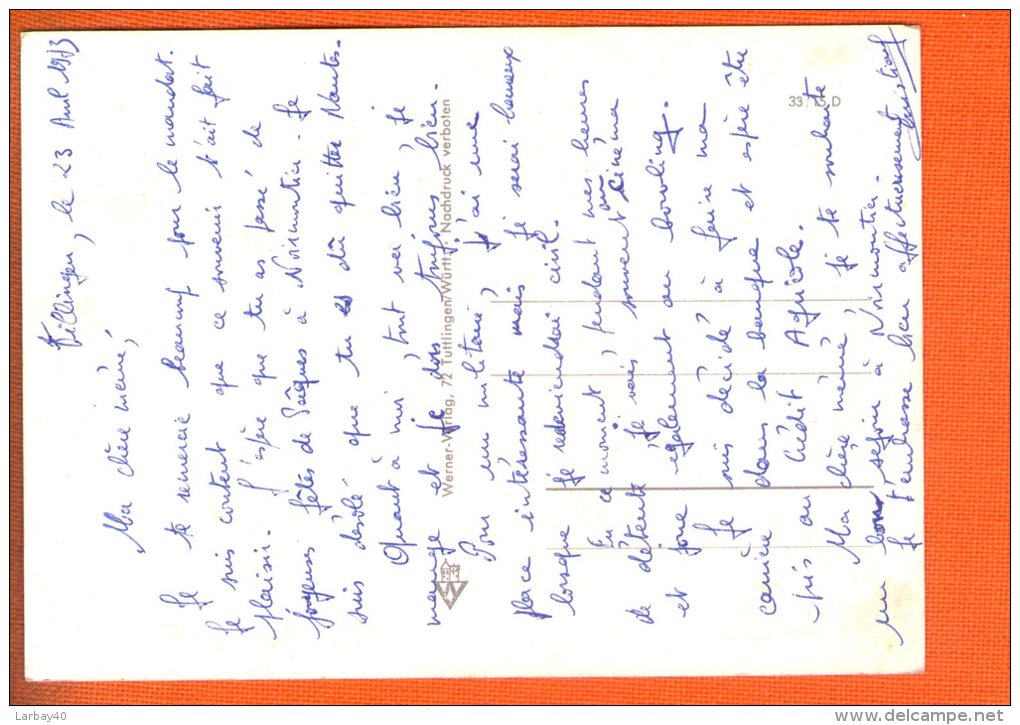 Villingen, le 23 Avril 1973
Ma chère mémé,
Je te remercie beaucoup pour le mandat.
Je suis content que ce souvenir t'ait fait
plaisir. J'espère que tu as passé de
joyeuses fêtes de Pâques à Noirmoutier. Je
suis désolé que tu es dû quitter Nantes.
Quant à moi, tout va bien, je
mange et je dors toujours bien.
Pour un militaire, j'ai une
place intéressante mais je serai heureux
lorsque je redeviendrai civil.
En ce moment, pendant mes heures
de détente je vais souvent au cinéma
et joue également au bowling.
Je suis décidé à faire ma
carrière dans la banque et espère être
pris au Crédit Agricole.
Ma chère mémé, je te souhaite
un bon séjour à Noirmoutier.
Je t'embrasse bien affectueusement
Christian
Werner-Verlag, 72 Tuttlingen/Württ. Nachdruck verboten
33/15 D
Larbay40
www.delcampe.net